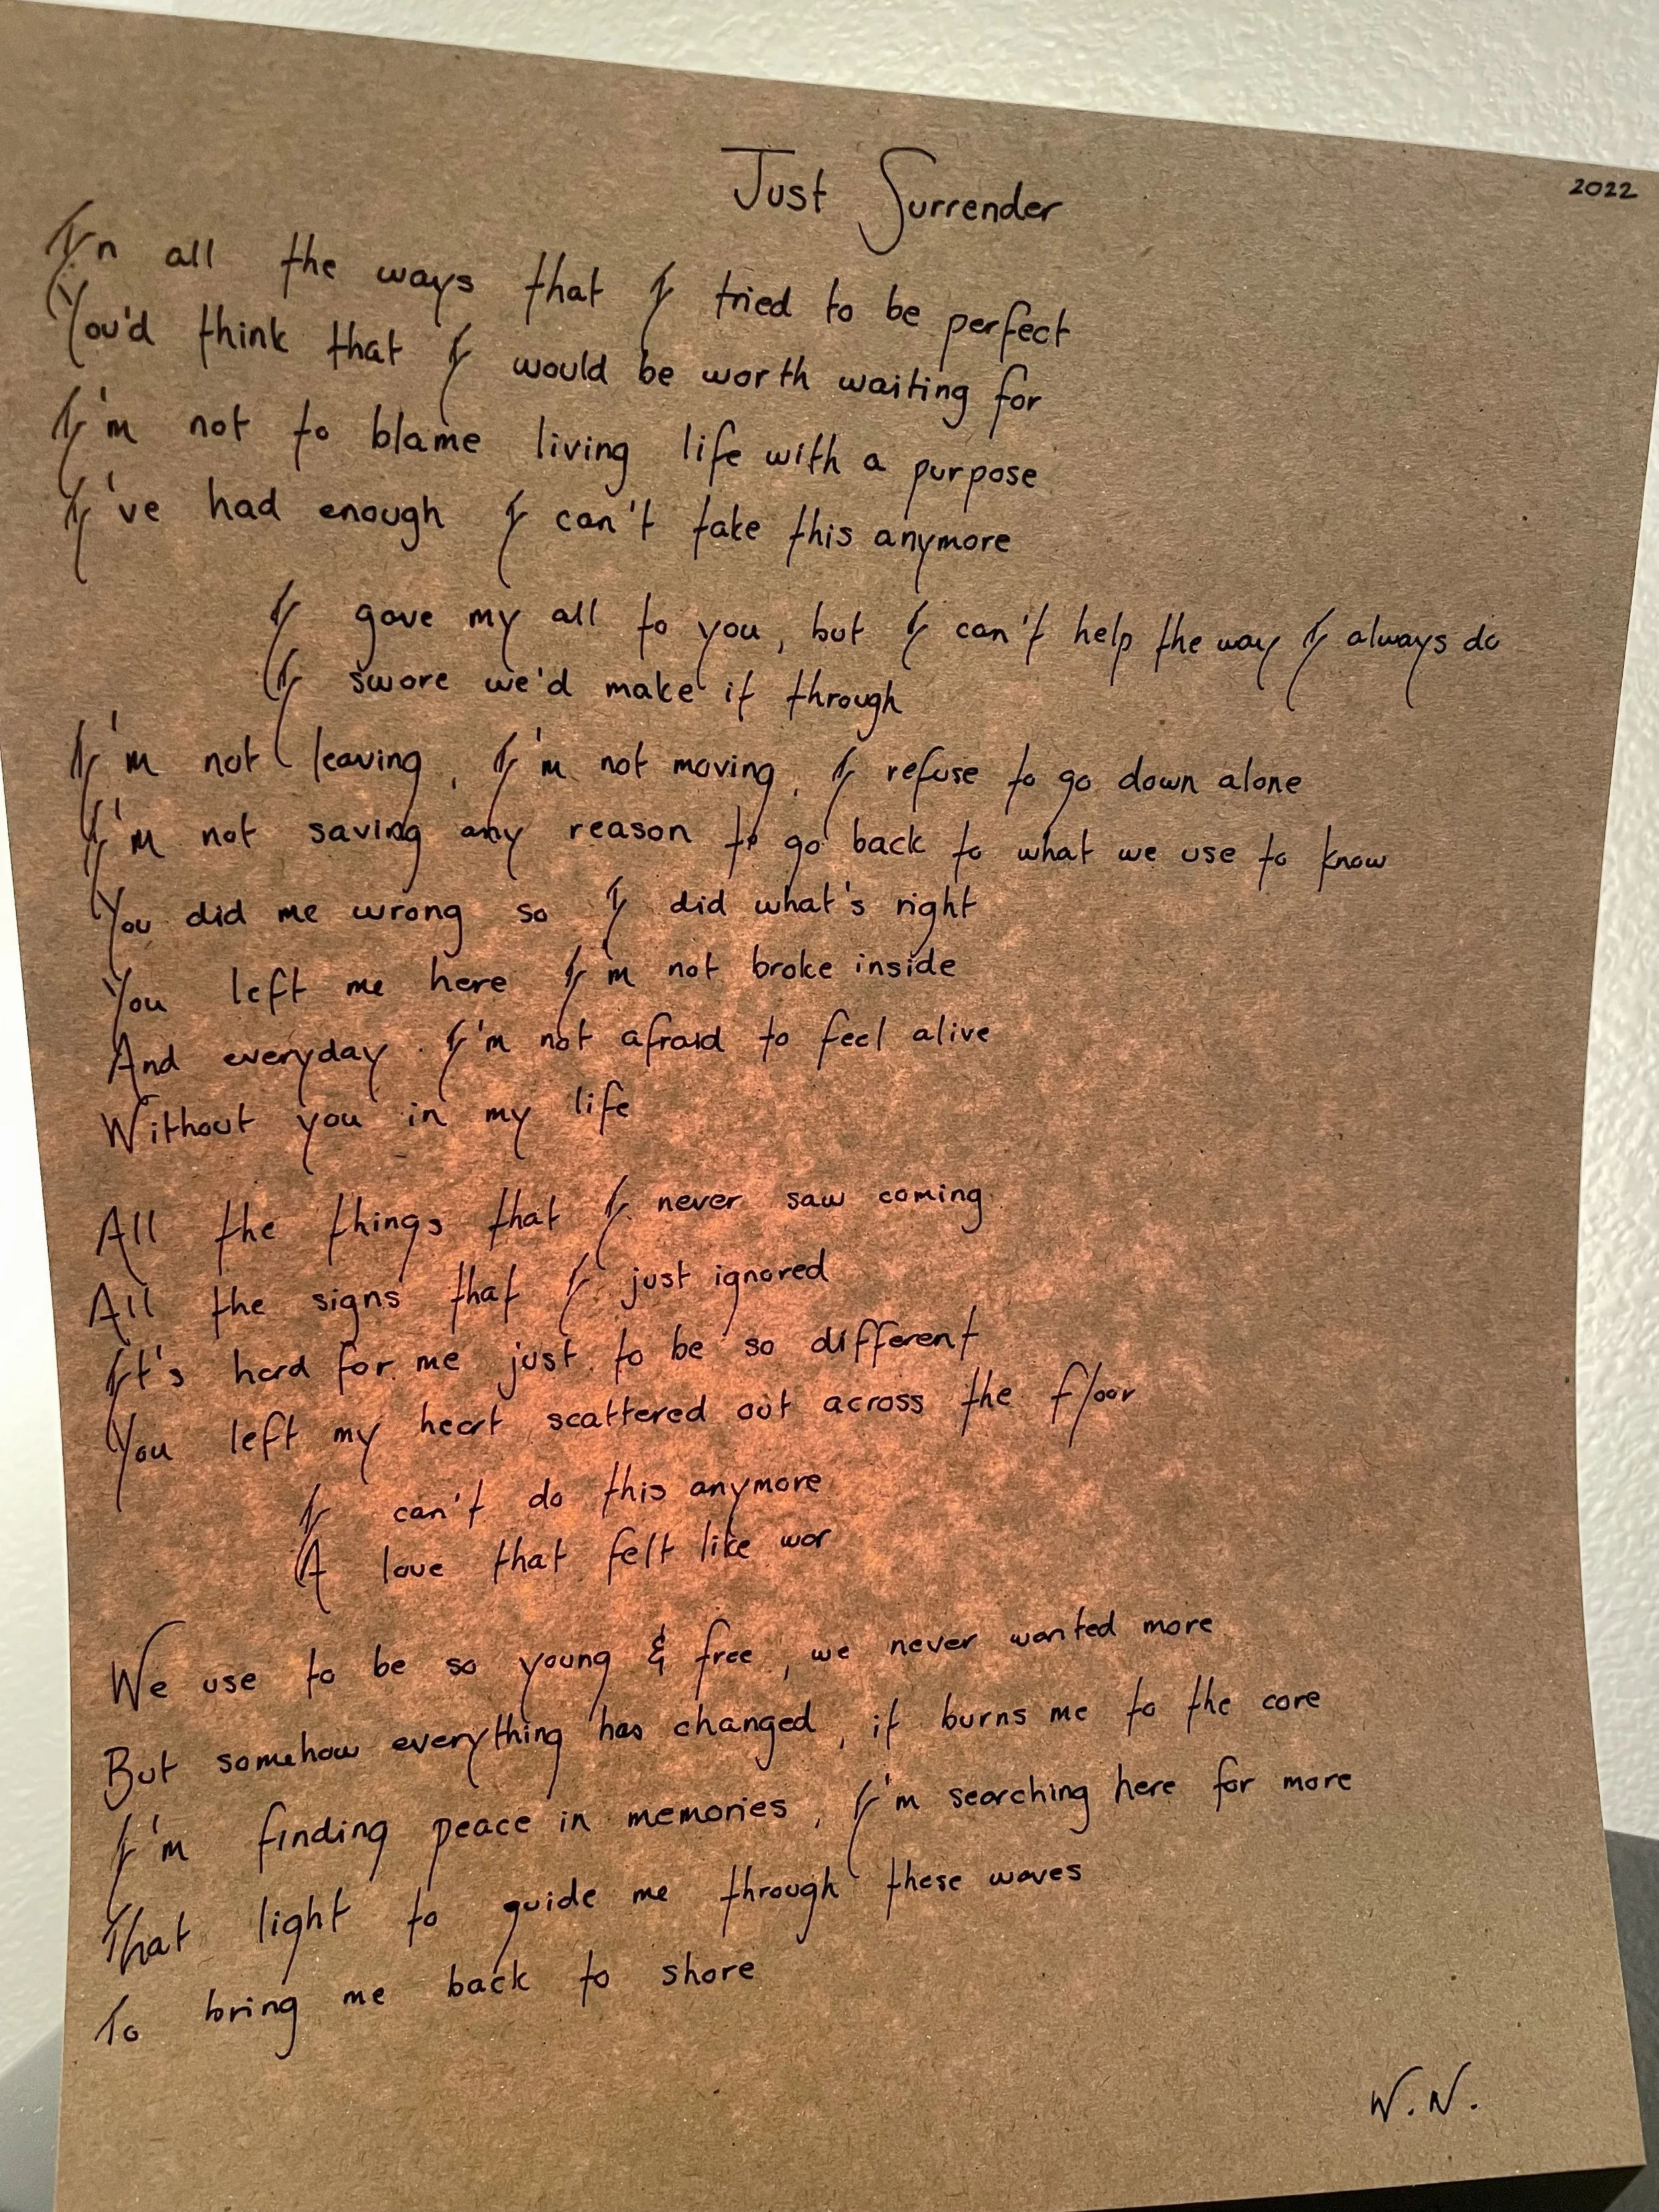 Just Surrender
2022
In all the ways that I tried to be perfect
You'd think that I would be worth waiting for
I'm not to blame living life with a purpose
I've had enough I can't take this anymore
I gave my all to you, but I can't help the way I always do
I swore we'd make it through
I'm not leaving, I'm not moving, I refuse to go down alone
I'm not saving any reason to go back to what we use to know
You did me wrong so I did what's right
You left me here I'm not broke inside
And everyday I'm not afraid to feel alive
Without you in my life
All the things that I never saw coming
All the signs that I just ignored
It's hard for me just to be so different
You left my heart scattered out across the floor
I can't do this anymore
A love that felt like war
We use to be so young & free, we never wanted more
But somehow everything has changed, it burns me to the core
I'm finding peace in memories, I'm searching here for more
That light to guide me through these waves
To bring me back to shore
W.N.